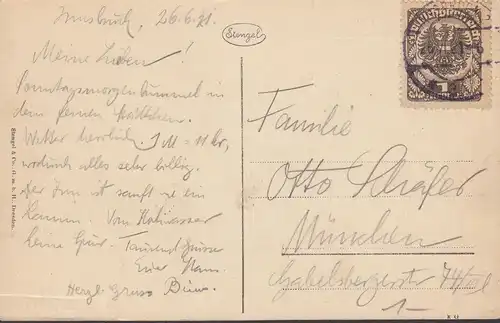 Innsbruck, 26.6.21.
Meine Lieben!
Sonntagsmorgenbummel in
dem feinen Städtchen.
Wetter herrlich 1 M = 11 Kr,
wodurch alles sehr billig.
Der Inn ist sanft wie ein
Lamm. Von Hochwasser
keine Spur. Tausend Grüsse
Euer Hans.
Herzl. Gruss
Stengel
Stengel & Co., G. m. b. H., Dresden.
Deutschösterreich
1
Familie
Otto Schäfer
München
Gabelsbergerstr 74/